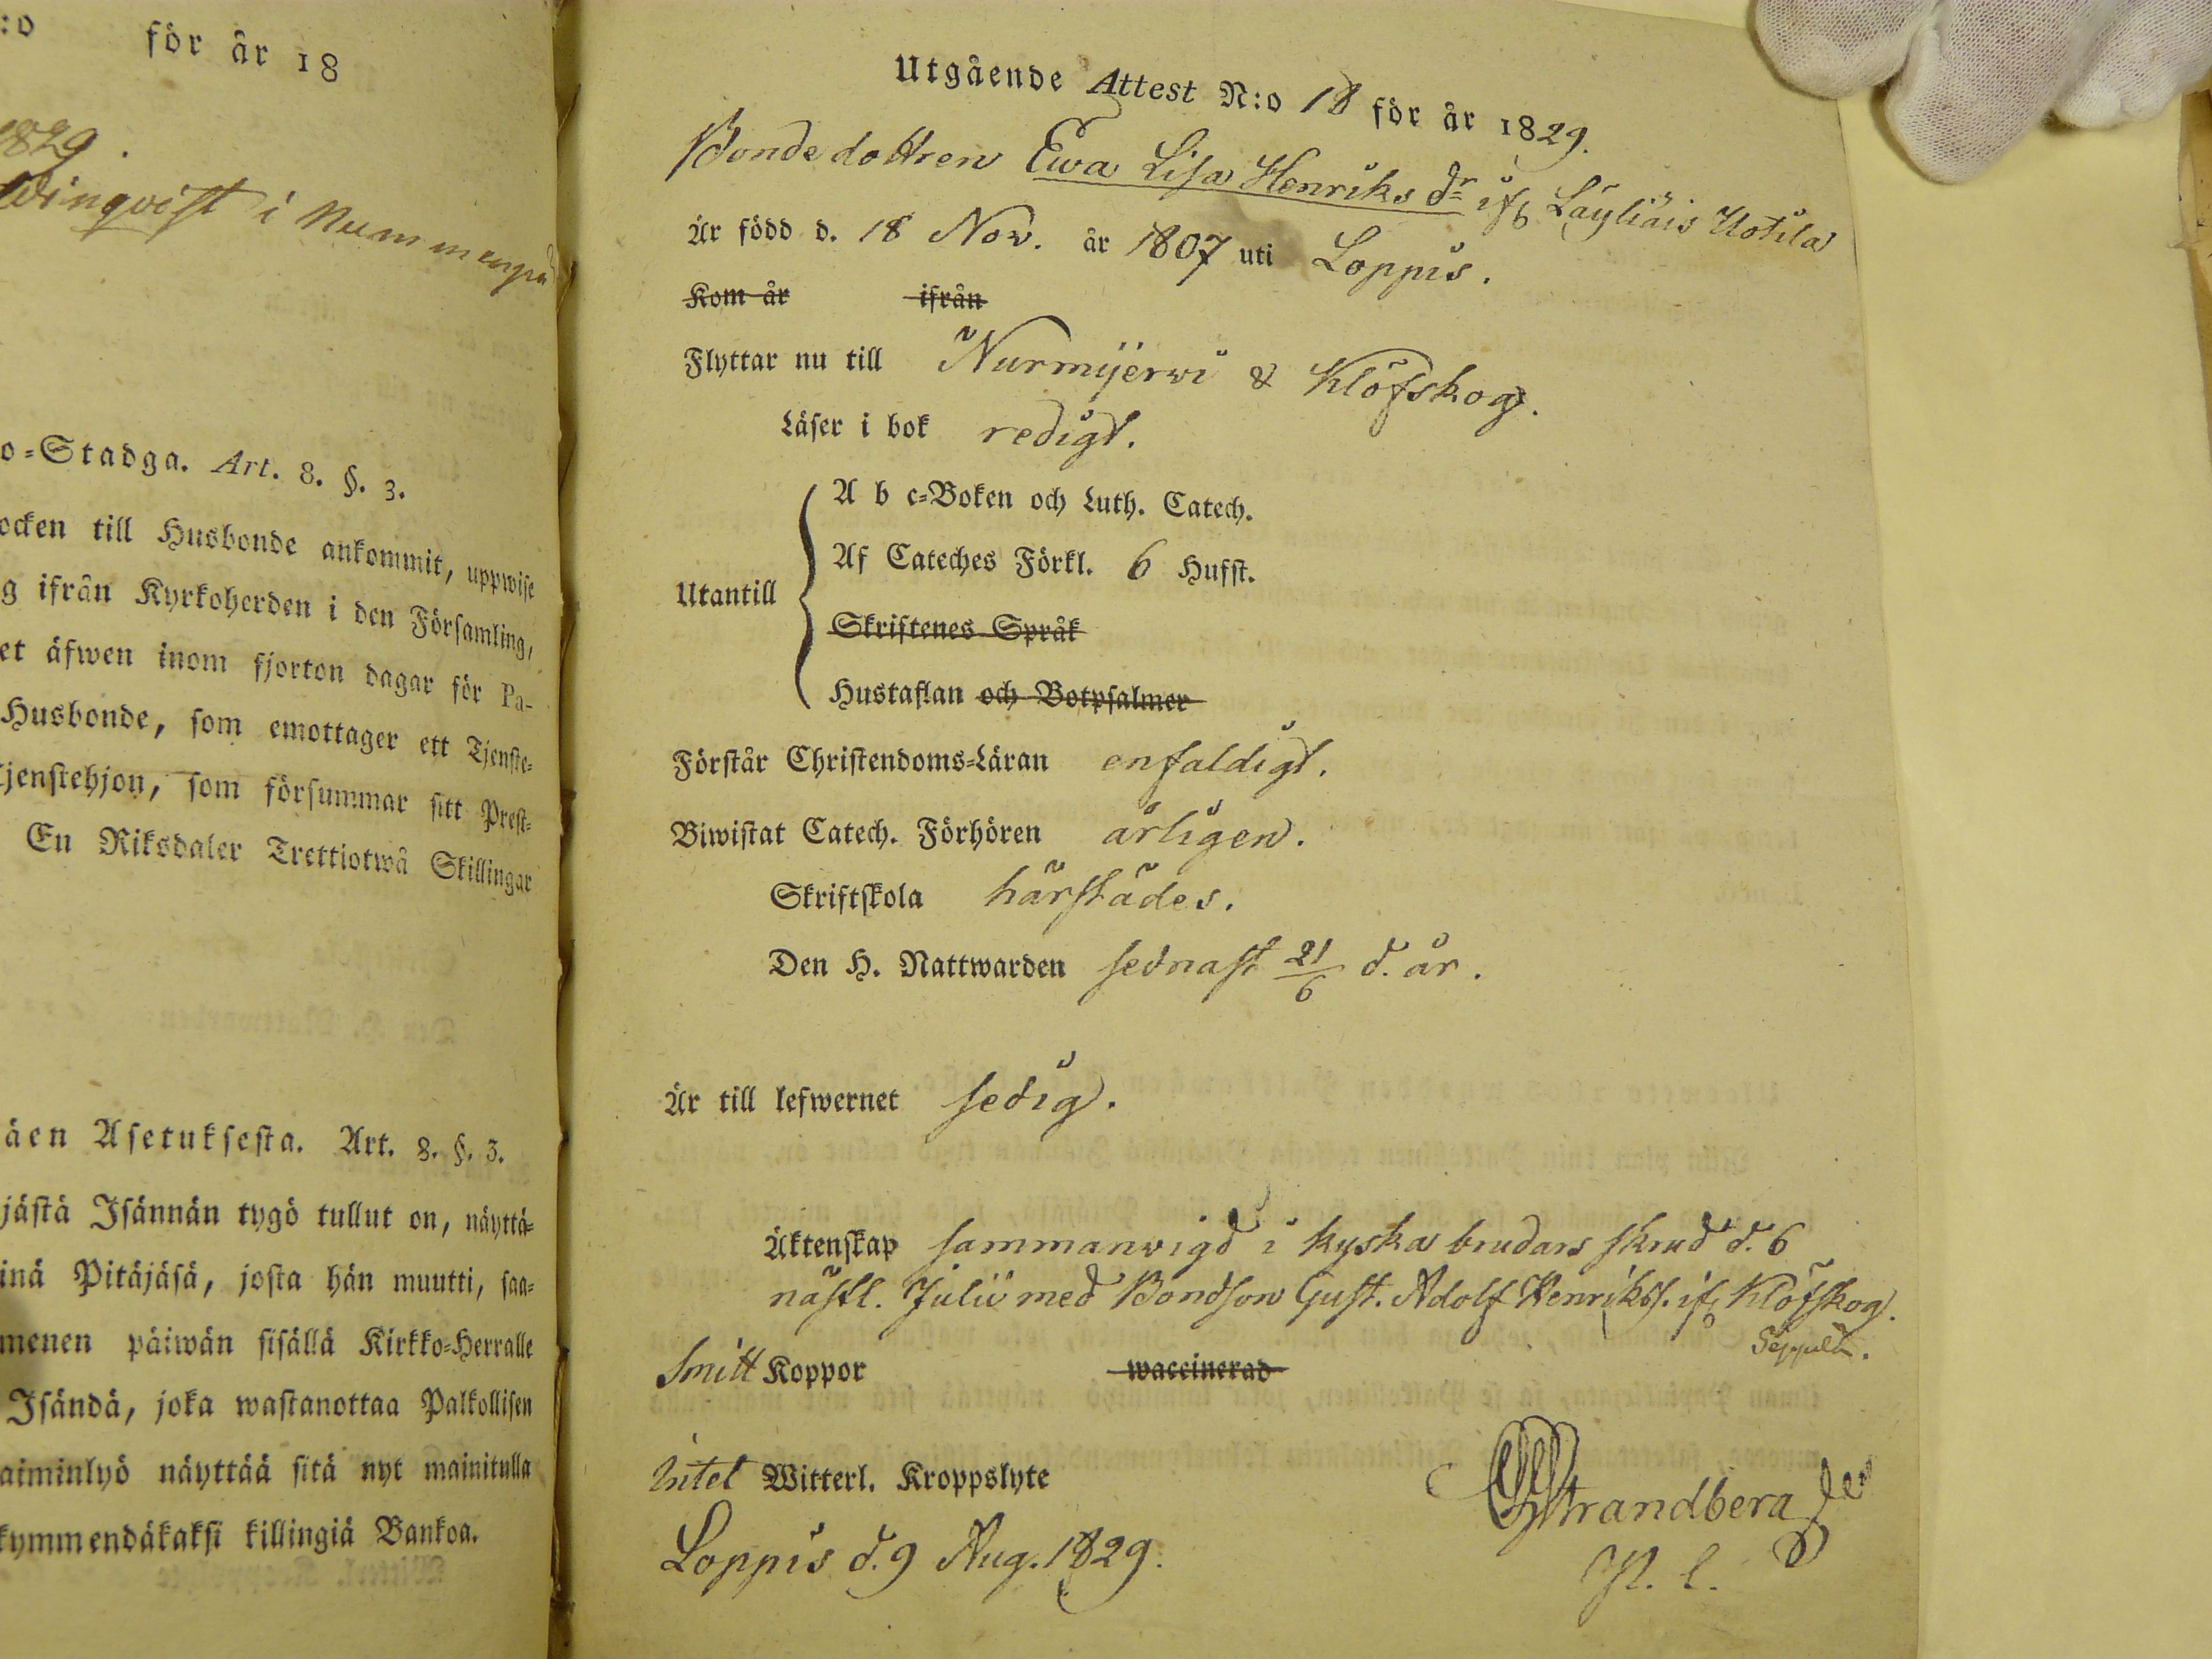 :o för år 18
1829.
Winqvist i Nummenpä
o-Stadga. Art. 8. §. 3.
ocken till Husbonde ankommit, uppwise
g ifrån Kyrkoherden i den Församling,
et äfwen inom fjorton dagar för Pa-
Husbonde, som emottager ett Tjenste-
jenstehjon, som försummar sitt Prest-
En Riksdaler Trettiotwå Skillingar
äen Asetuksesta. Art. 8. §. 3.
jästä Isännän tygö tullut on, näyttä-
inä Pitäjäsä, josta hän muutti, saa-
menen päiwän sisällä Kirkko-Herralle
Isändä, joka wastanottaa Palkollisen
aiminlyö näyttää sitä nyt mainitulla
kymmendäkaksi killingiä Bankoa.
Utgående Attest N:o 18 för år 1829.
Bondedottren Ewa Lisa Henriks dr ifr Läyliäis Uotila
Är född d. 18 Nov. år 1807 uti Loppis.
Kom år ifrån
Flyttar nu till Nurmijerwi & Klöfskog.
Läser i bok redigt.
A b c-Boken och Luth. Catech.
Af Cateches Förkl. 6 Hufst.
Utantill
Skriftenes Språk
Hustaflan och Botpsalmer
Förstår Christendoms-Läran enfaldigt.
Biwistat Catech. Förhören årligen.
Skriftskola härstädes.
Den H. Nattwarden sednast 21/6 d. år.
Är till lefwernet sedig.
Äktenskap sammanvigd i kyska brudars skrud d. 6
nästl. Julii med Bondson Gust. Adolf Henrikss. ifr Klöfskog.
Seppälä.
Smitt Koppor waccinerad
Intet Witterl. Kroppslyte
Strandberg
Loppis d. 9 Aug. 1829.